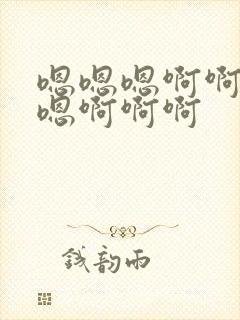 嗯嗯嗯啊啊
嗯啊啊啊
钱韵雨